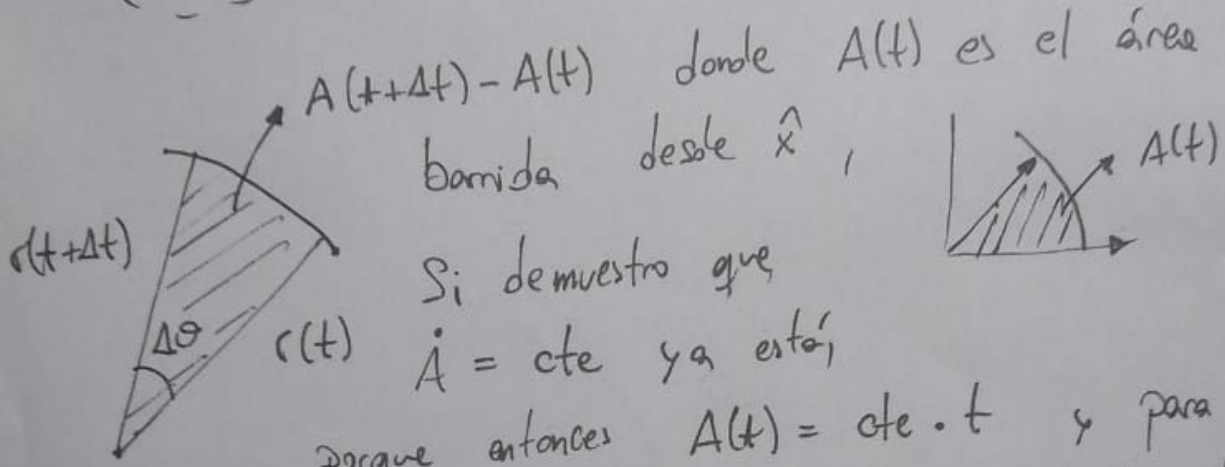 A(t+Δt) - A(t) donde A(t) es el área
barrida desde x̂ ,
A(t)
r(t+Δt)
Si demuestro que
Δθ
r(t)
Ȧ = cte ya está,
porque entonces A(t) = cte . t y para